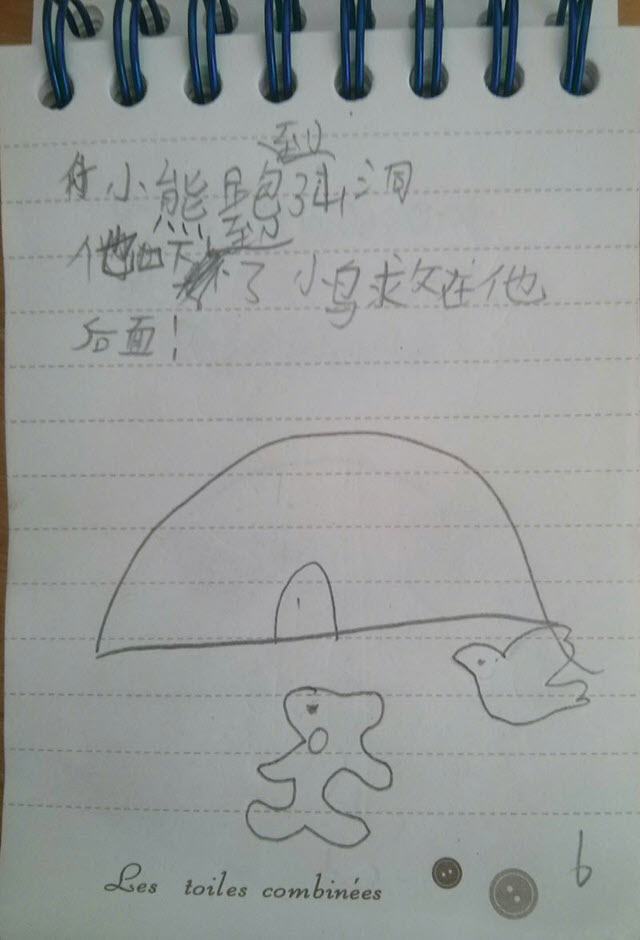 到
小熊跑 洞
他吓到了 小鸟救在他
后面!
Les toiles combinées
6